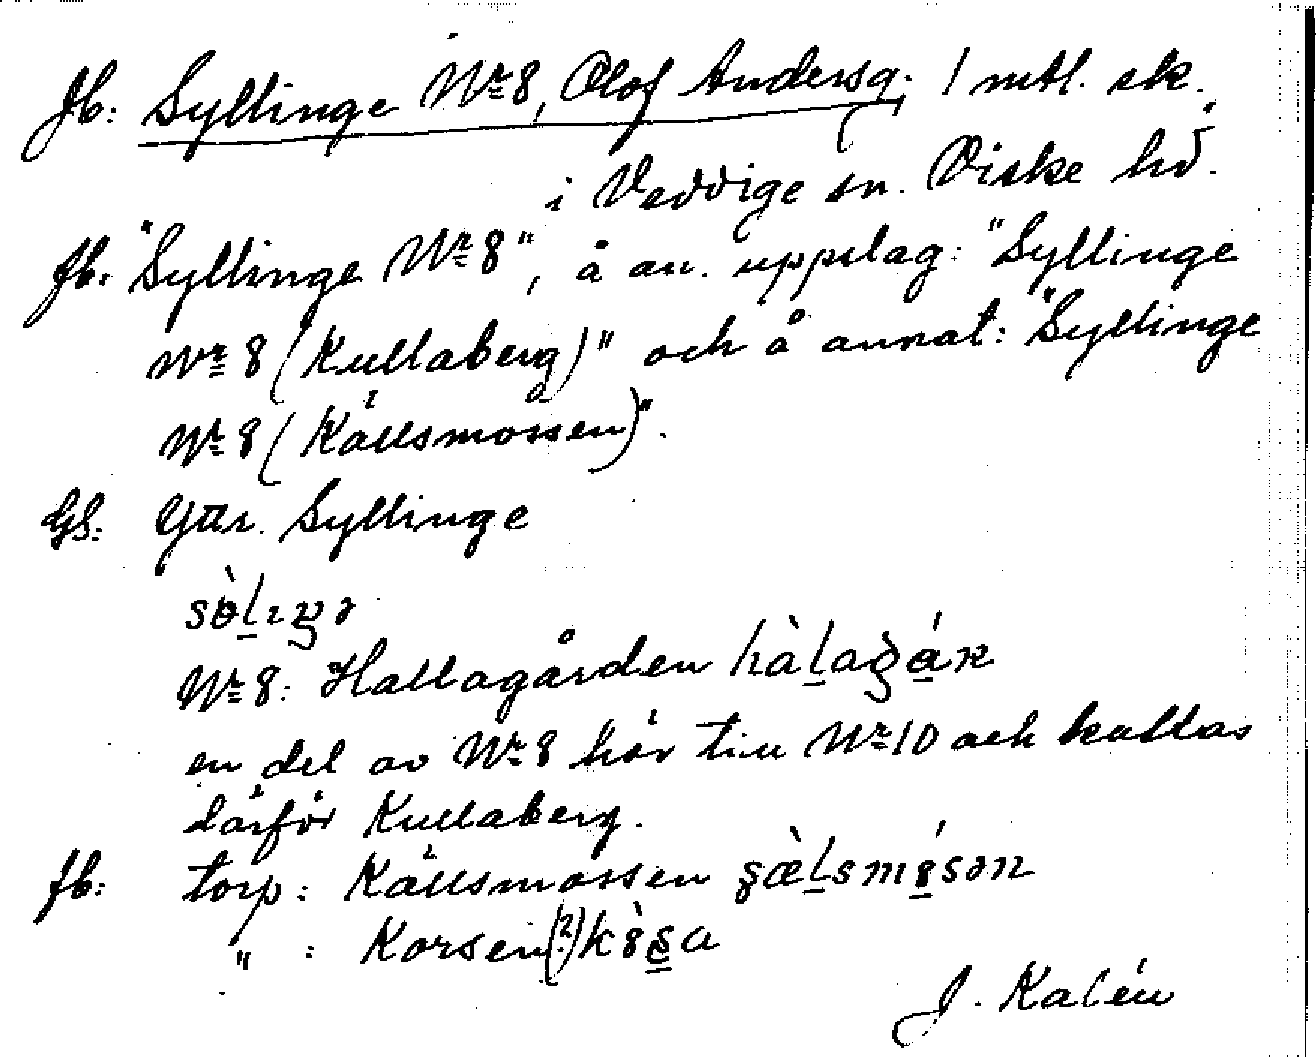 Jb: Syllinge Nr 8, Olof Andersg. 1 mtl. sk.
i Veddige sn. Viske hd.
Jb. "Syllinge Nr 8", å an. uppslag: "Syllinge
Nr 8 (Kullaberg)" och å annat: "Syllinge
Nr 8 (Källsmossen)".
GS. Går. Syllinge
Nr 8: Hallagården
en del av Nr 8 hör till Nr 10 och kallas
därför Kullaberg.
Jb: torp: Källsmossen
" : Korsen (?)
J. Kalén